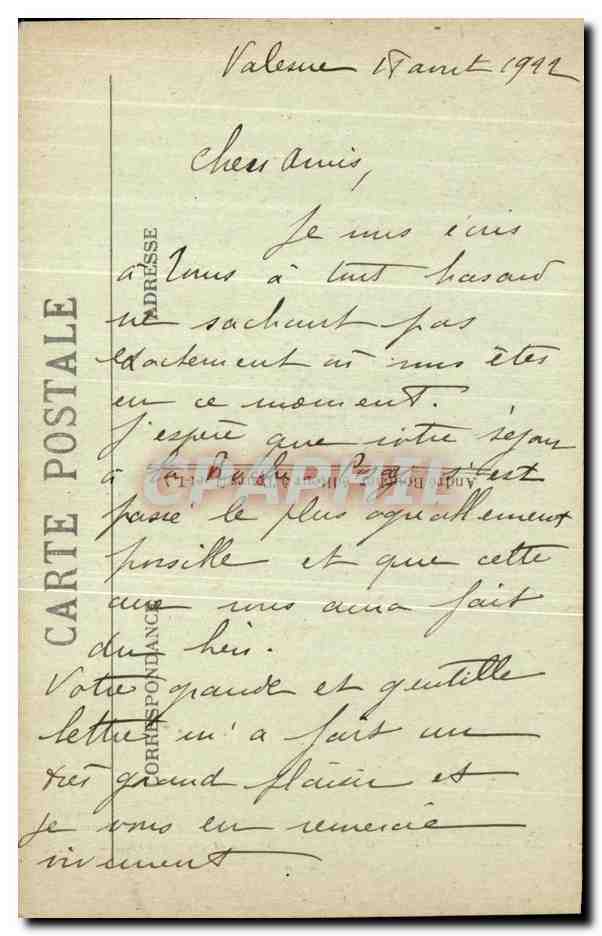 18 août 1922
Chers Amis,
Je vous écris
à Tours à tout hasard
ne sachant pas
exactement où vous êtes
en ce moment.
J'espère que votre séjour
à la Roche Posay s'est
passé le plus agréablement
possible et que cette
cure vous aura fait
du bien.
Votre grande et gentille
lettre m'a fait un
très grand plaisir et
je vous en remercie
vivement
CARTE POSTALE
ADRESSE
CORRESPONDANCE
CPAPHIL